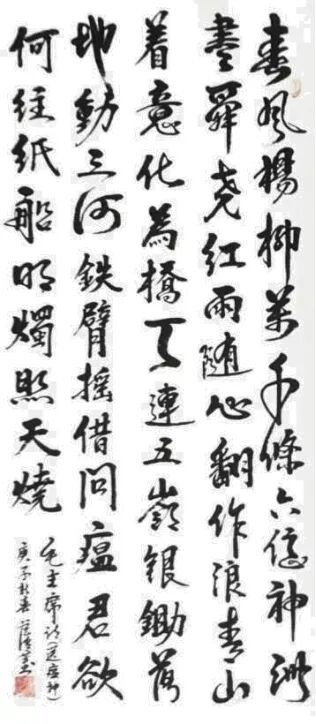 春風楊柳萬千條六億神洲
盡舜尧紅雨随心翻作浪青山
着意化為橋天連五嶺银鋤落
地動三河鉄臂摇借問瘟君欲
何往纸船明燭照天燒
毛主席詩（送瘟神）
庚子於春